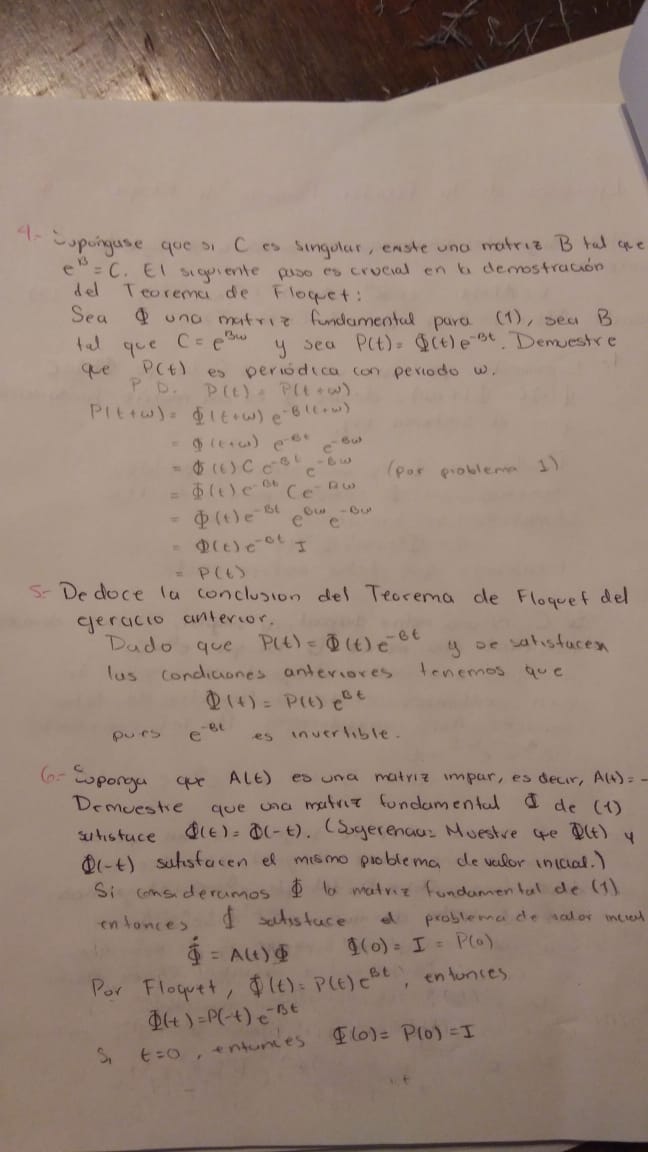 4.- Supongase que si C es singular, existe una matriz B tal que
e^B = C. El siguiente paso es crucial en la demostración
del Teorema de Floquet:
Sea Φ una matriz fundamental para (1), sea B
tal que C = e^{Bω} y sea P(t) = Φ(t)e^{-Bt}. Demuestre
que P(t) es periódica con periodo ω.
P.D. P(t) = P(t+ω)
P(t+ω) = Φ(t+ω) e^{-B(t+ω)}
= Φ(t+ω) e^{-Bt} e^{-Bω}
= Φ(t) C e^{-Bt} e^{-Bω} (por problema 1)
= Φ(t) e^{-Bt} C e^{-Bω}
= Φ(t) e^{-Bt} e^{Bω} e^{-Bω}
= Φ(t) e^{-Bt} I
= P(t)
5.- Deduce la conclusion del Teorema de Floquet del
ejercicio anterior.
Dado que P(t) = Φ(t) e^{-Bt} y se satisfacen
las condiciones anteriores tenemos que
Φ(t) = P(t) e^{Bt}
pues e^{-Bt} es invertible.
6.- Suponga que A(t) es una matriz impar, es decir, A(t) = -
Demuestre que una matriz fundamental Φ de (1)
satisface Φ(t) = Φ(-t). (Sugerencia: Muestre que Φ(t) y
Φ(-t) satisfacen el mismo problema de valor inicial.)
Si consideramos Φ la matriz fundamental de (1)
entonces Φ satisface el problema de valor inicial
Φ̇ = A(t)Φ Φ(0) = I = P(0)
Por Floquet, Φ(t) = P(t)e^{Bt}, entonces
Φ(-t) = P(-t) e^{-Bt}
Si t=0, entonces Φ(0) = P(0) = I